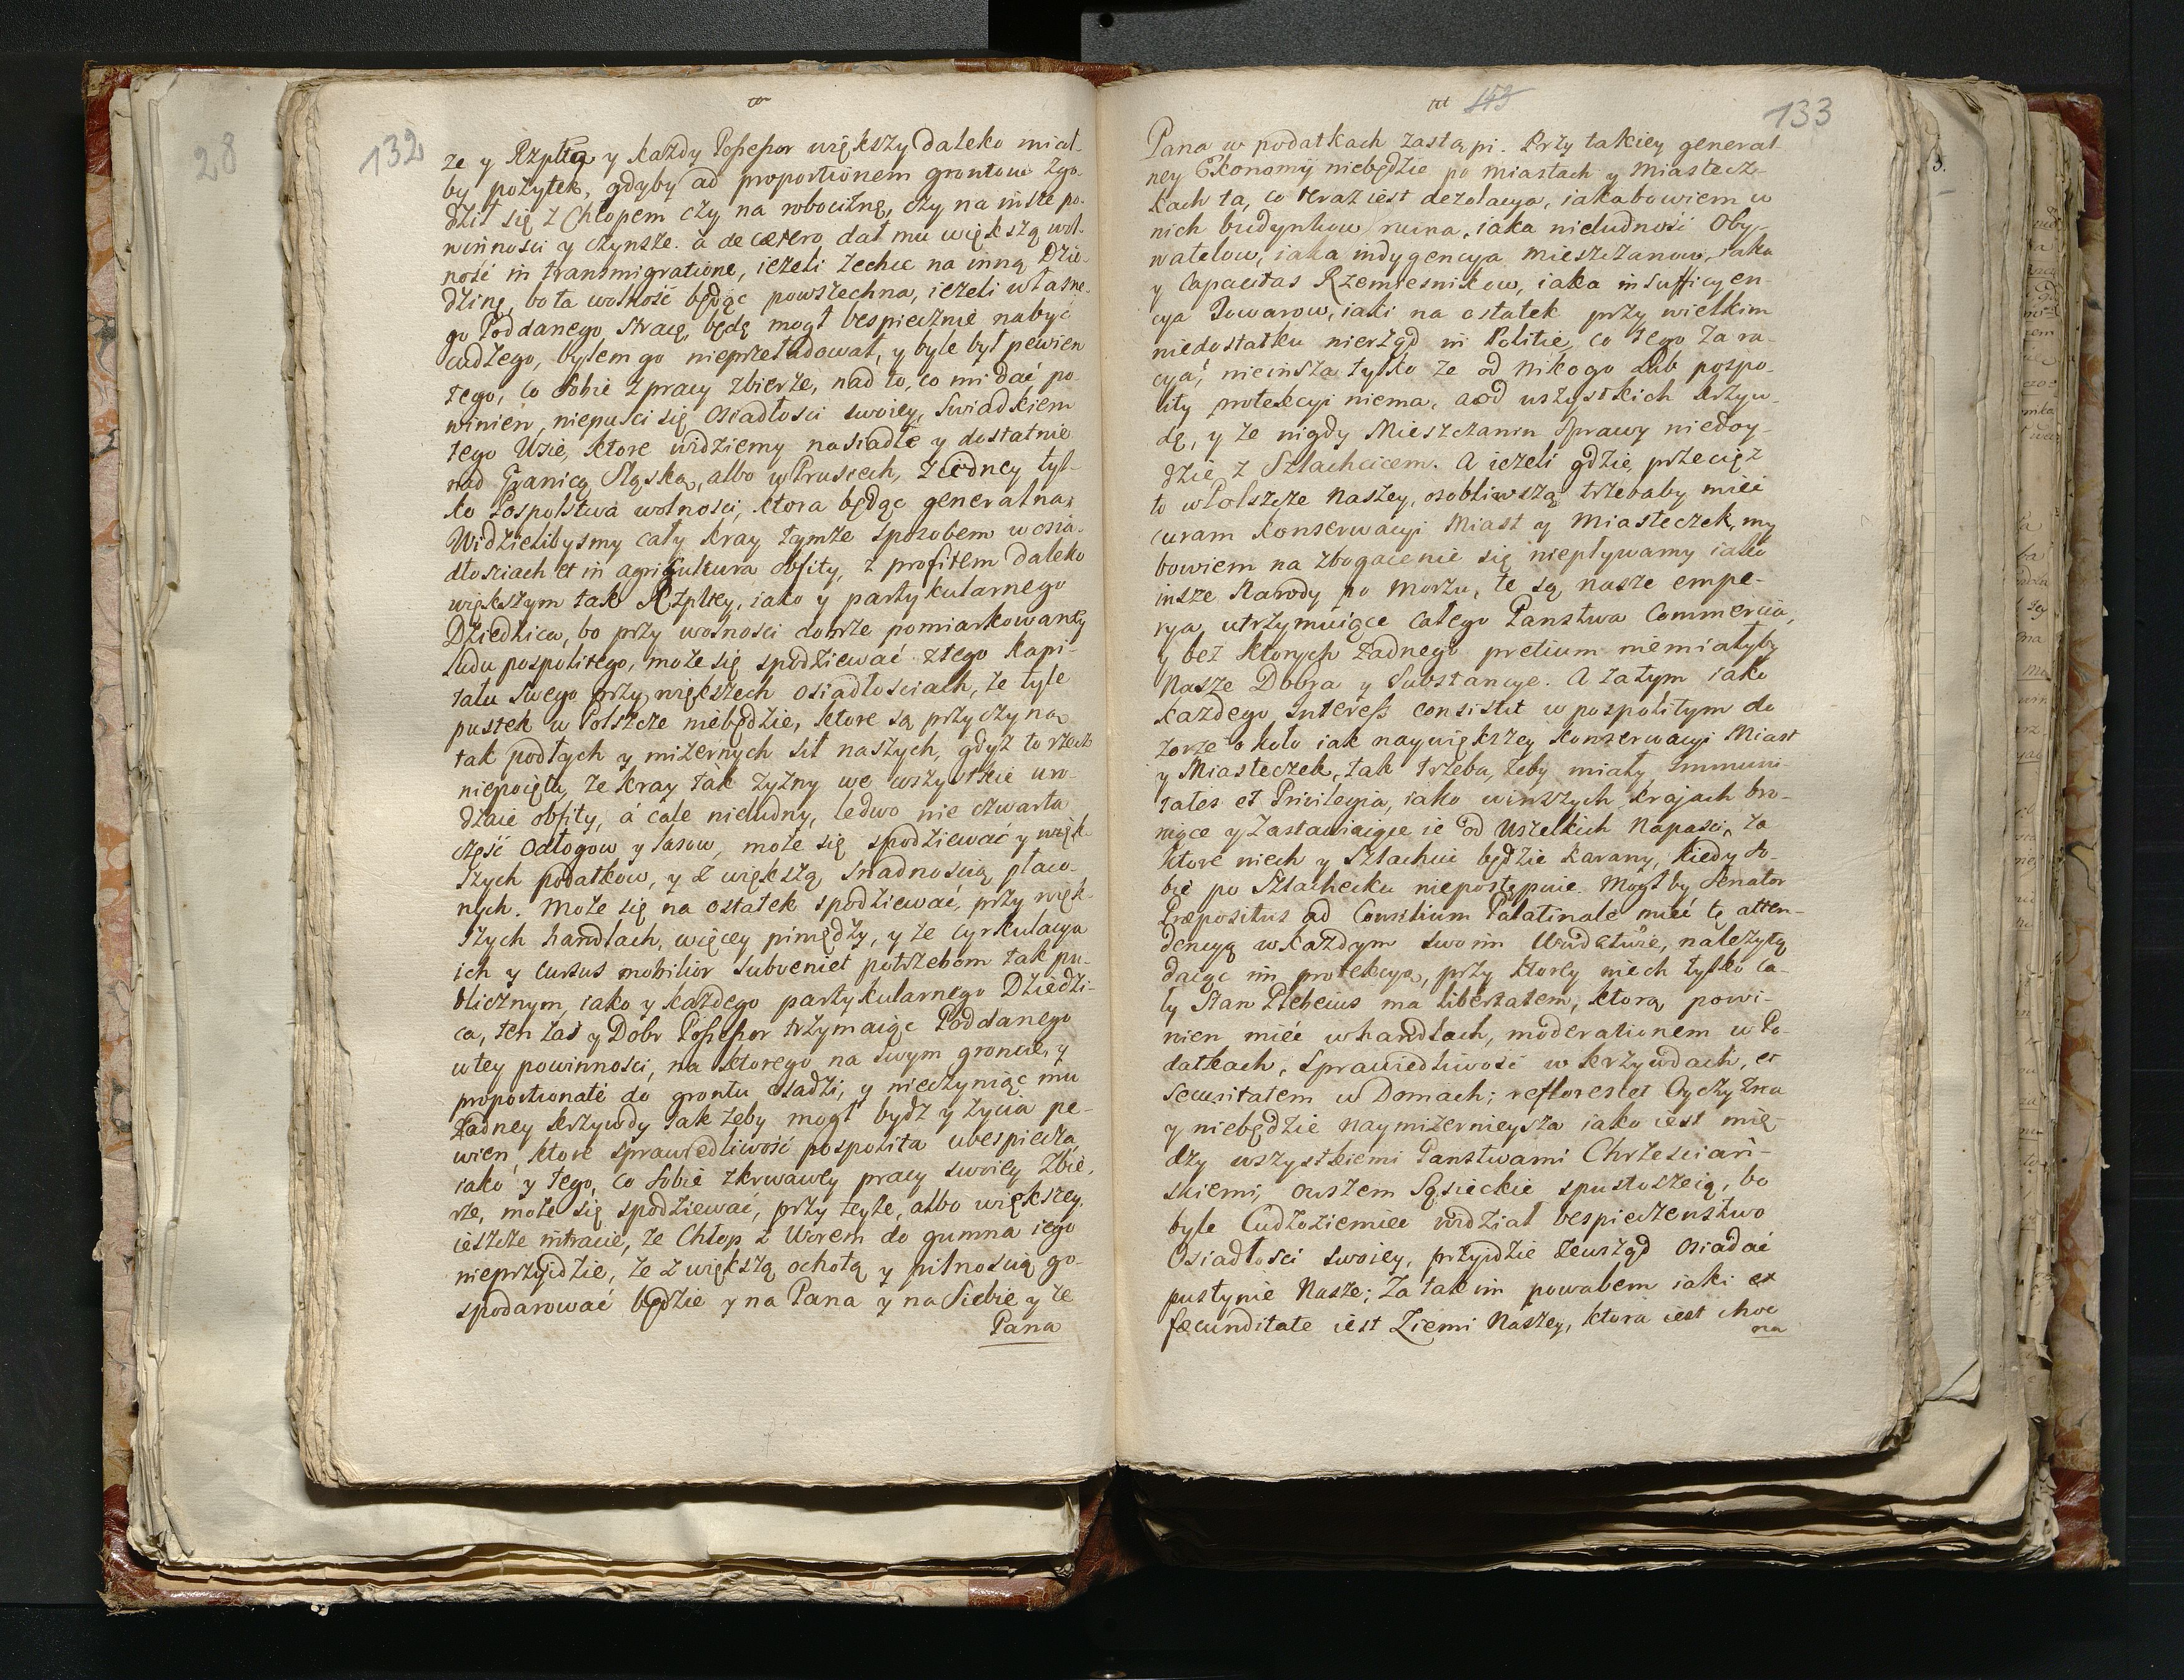 28
132
ze y Rzplta y każdy Possessor większy daleko miał-
by pożytek, gdyby ad proportionem grontow zgo-
dził się z Chłopem czy na robociznę, czy na inśze po-
winności y czynsze. a de cætero dał mu większą wol-
ność in transmigratione, ieżeli zechce na inną Dzie-
dzinę, bo ta wolność będąc powszechna, ieżeli własne-
go Poddanego stracę, będę mogł bespiecznie nabyć
cudzego, bylem go nieprześladował, y byle był pewien
tego, co sobie z pracy zbierze, nad to, co mi dać po-
winien, niepuści się osiadłości swoiey, Swiadkiem
tego Wsie, ktore widziemy nasiadłe y dostatnie
nad Granicą Sląską, albo w Prusiech, z iedney tyl-
ko Pospolstwa wolności, ktora będąc generalna,
Widzielibysmy cały kray tymże sposobem w osia-
dłosciach et in agricultura obfity, z profitem daleko
większym tak Rzpltey, iako y partykularnego
Dziedzica, bo przy wolności dobrze pomiarkowaney
ludu pospolitego, może się spodziewać z tego kapi-
tału swego przy większech osiadłościach, że tyle
pustek w Polszcze niebędzie, ktore są przyczyną
tak podłych y mizernych sił naszych, gdyż to rzecz
niepojęta, że kray tak żyzny we wszystkie uro-
dzaie obfity, á cale nieludny, ledwo nie czwarta
część odłogow y lasow, może się spodziewać y więk-
szych podatkow, y z większą snadnością płaco-
nych. Może się na ostatek spodziewać, przy więk-
szych handlach, więcey pinędzy, y że cyrkulacya
ich y cursus mobilior subveniet potrzebom tak pu-
blicznym, iako y każdego partykularnego Dziedzi-
ca, ten zaś y Dobr Possessor trzymaiąc Poddanego
w tey powinności, na ktorego na swym groncie, y
proportionaté do grontu osadzi, y nieczyniąc mu
żadney krzywdy tak żeby mogł bydź y życia pe-
wien, ktore sprawiedliwość pospolita ubespiecza,
iako y tego, co sobie z krwawey pracy swoiey zbie-
rze, może się spodziewać, przy teyże, albo większey
ieszcze intracie, że Chłop z Worem do gumna iego
nieprzyjdzie, że z większą ochotą y pilnością go-
spodarować będzie y na Pana y na Siebie y że
Pana
153
133
Pana w podatkach zastąpi. Przy takiey general-
ney Ekonomij niebędzie po miastach y Miastecz-
kach ta, co teraz iest dezolacya, iaka bowiem w
nich budynkow ruina, iaka nieludność Oby-
watelow, iaka indygencya mieszczanow, iaka
y Capacitas Rzemiesnikow, iaka insufficyen-
cya Towarow, iaki na ostatek przy wielkim
niedostatku nierząd in Politie, co tego za ra-
cya? nieinsza tylko że od nikogo lub pospo-
lity protekcyi niema, a od wszystkich krzyw-
dę, y że nigdy Mieszczanin Sprawy niedoy-
dzie z Szlachcicem. A ieżeli gdzie, przecięż
to w Polszcze naszey, osobliwszą trzebaby mieć
curam konserwacyi Miast y Miasteczek, my
bowiem na zbogacenie się niepływamy iako
insze Narody po morzu, te są nasze empo-
rya utrzymuiące całego Panstwa Commercia,
y bez ktorych żadnego pretium niemiałyby
Nasze Dobra y Substancye. A zatym iako
każdego Interess consistit w pospolitym do
zorze około iak naywiększey konserwacyi Miast
y Miasteczek, tak trzeba, żeby miały Immuni-
tates et Privilegia, iako w inszych krajach bro-
niące y zastawiaiące ie od wszelkich napaści, za
ktore niech y Szlachcic będzie karany, kiedy so-
bie po Szlachecku niepostępuie. Mogł by Senator
Præpositus ad Consilium Palatinale mieć tę atten-
dencyą w każdym swoim Wudztwie, należytą
daiąc im protekcyą, przy ktorey niech tylko ca-
ły Stan Plebeius ma libertatem, ktorą powi-
nien mieć w handlach, moderationem w Po-
datkach, Sprawiedliwość w krzywdach, et
securitatem w Domach; reflorescet Oyczyzna
y niebędzie naymizernieysza iako iest mię-
dzy wszystkiemi Panstwami Chrześciań-
skiemi, owszem Sąsieckie spustoszeią, bo
byle Cudzoziemiec widział bespieczeństwo
Osiadłości swoiey, przyidzie zewsząd osiadać
pustynie Nasze; Za takim powabem iaki ex
fæcunditate iest Ziemi Naszey, ktora iest choc
na